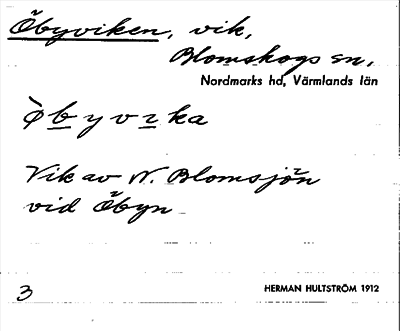 Öbyviken, vik,
Blomskogs sn,
Nordmarks hd, Värmlands län
o̊̀byvɪka
Vik av N. Blomsjön
vid Öbyn
3
HERMAN HULTSTRÖM 1912